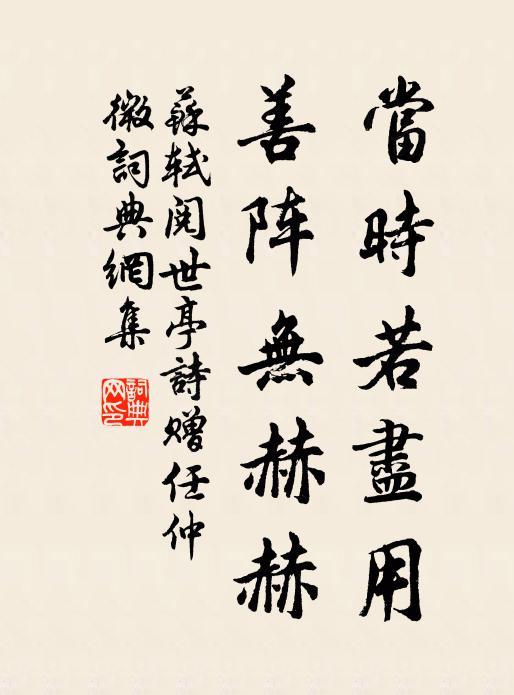 當時若盡用
善阵無赫赫
蘇轼阅世亭詩赠任仲
微詞典網集
詞典
网印